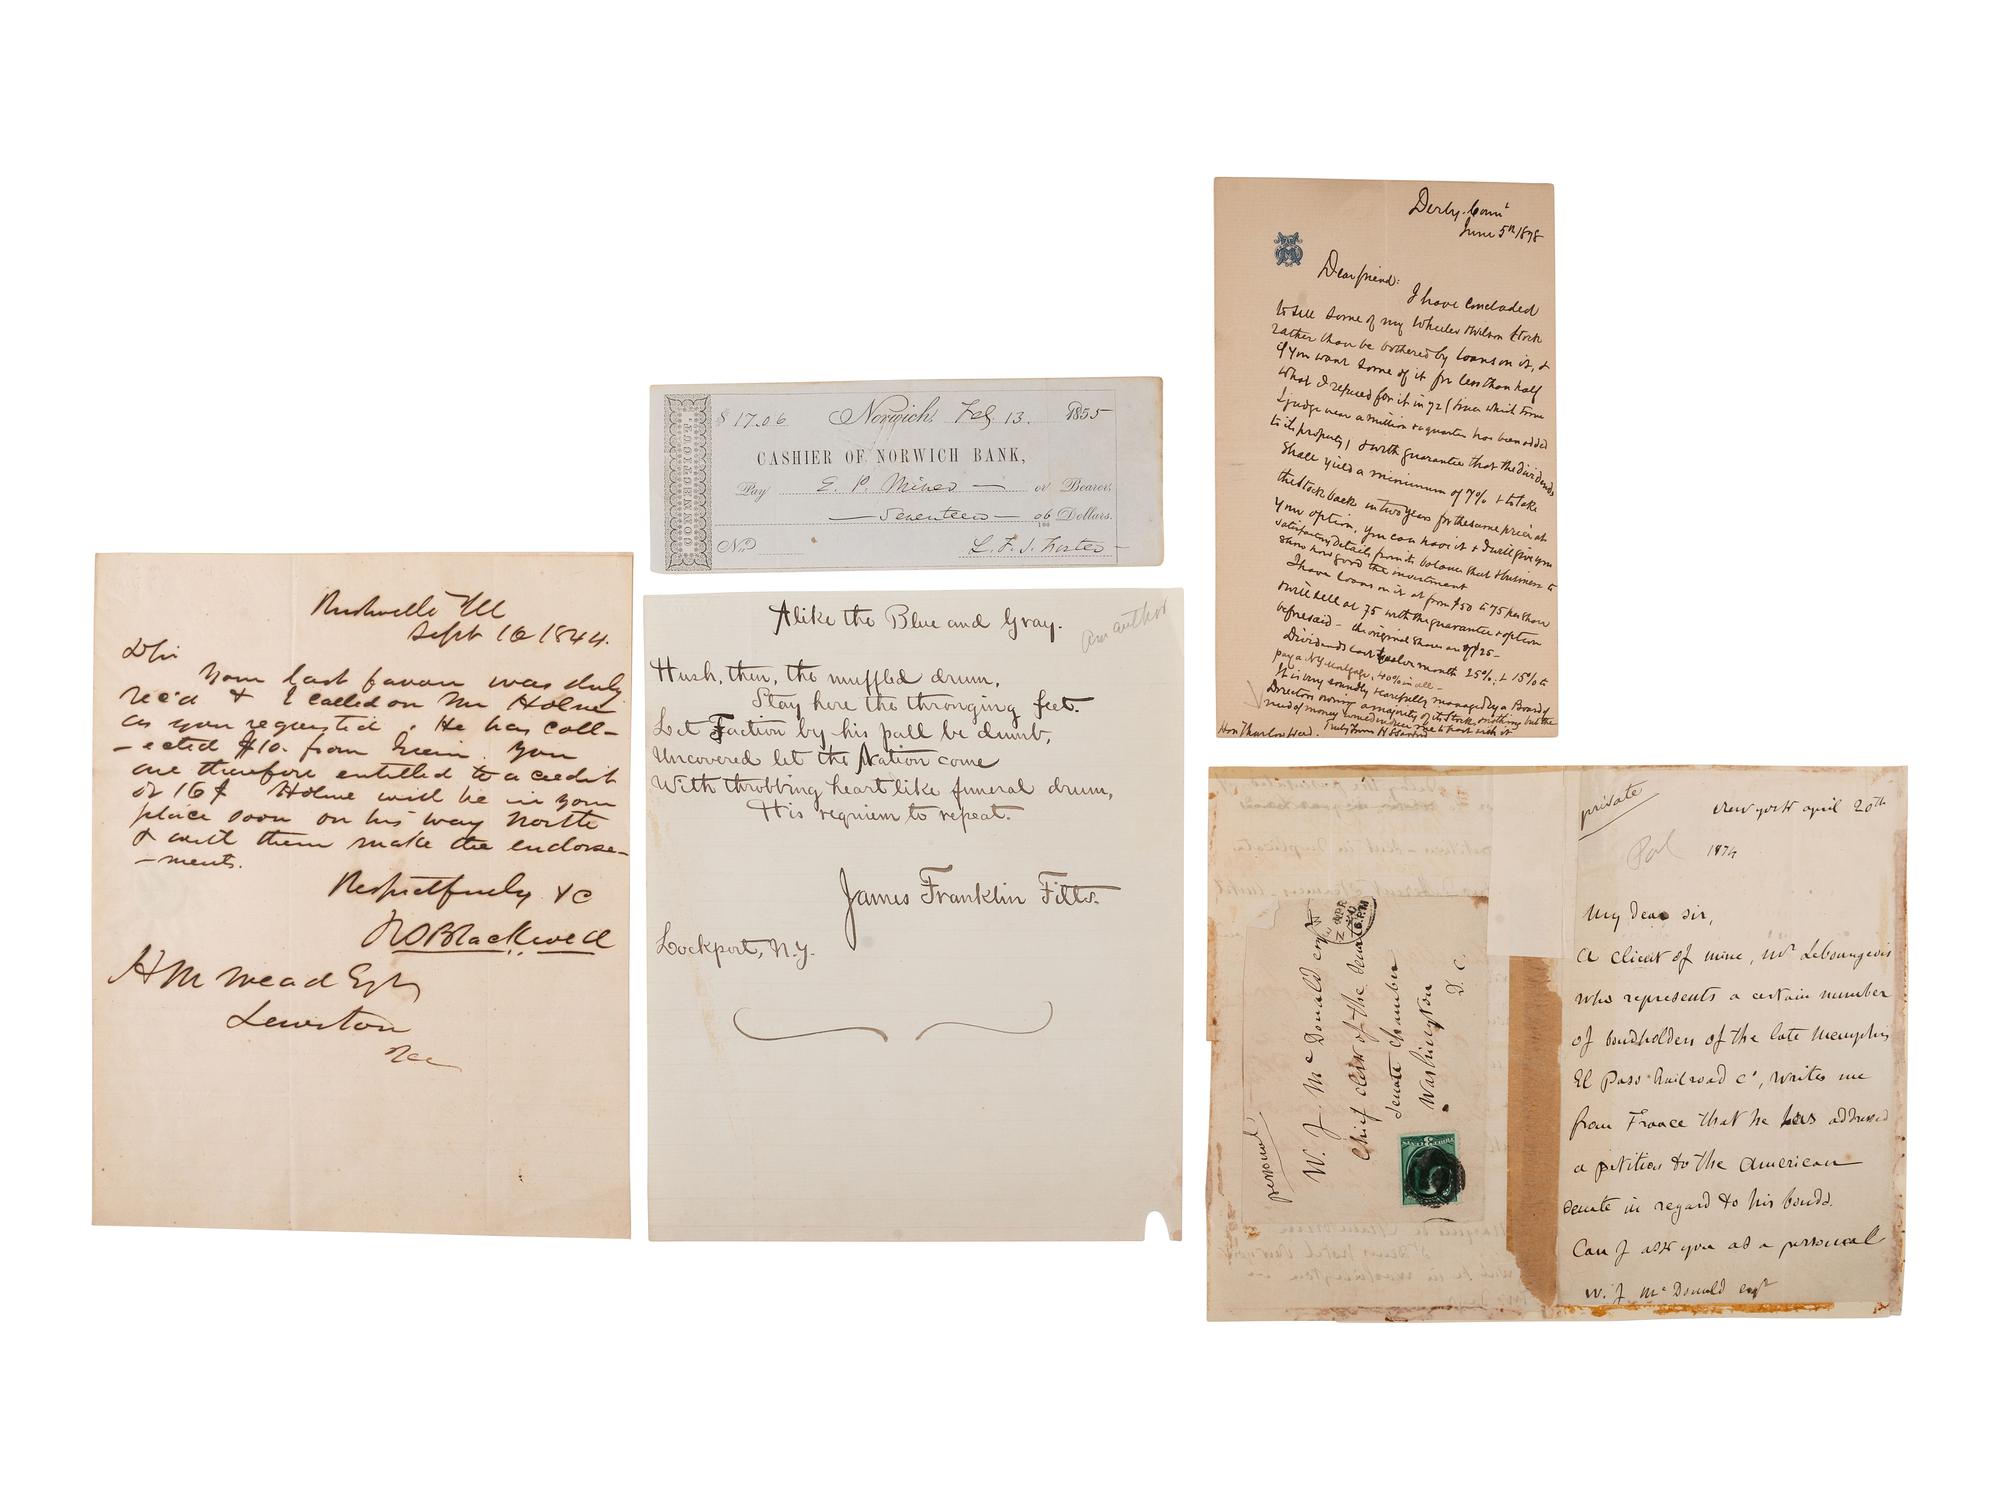 Rushville Ill
Sept 16 1844.
D Sir
Your last favour was duly
rec'd & I called on Mr Holme
as you requested. He has coll-
-ected $10. from You
are therefore entitled to a credit
of Holme will be in your
place soon on his way North
& will then make the endorse-
-ments.
Respectfully &c
Blackwell
H M Wead Esq
Lewiston
Ills
CONNECTICUT.
$ 17.06 Norwich, Feb 13. 1855
CASHIER OF NORWICH BANK,
Pay E. P. Miner — or Bearer,
— Seventeen — 06/100 Dollars.
No L. F. S. Foster
Alike the Blue and Gray.
an author
Hush, then, the muffled drum,
Stay here the thronging feet.
Let Faction by his pall be dumb,
Uncovered let the Nation come
With throbbing heart like funeral drum,
His requiem to repeat.
James Franklin Fitts.
Lockport, N.Y.
Derby. Connt
June 5th 1878
Dear friend:
I have concluded
to sell some of my Wheeler & Wilson Stock
rather than be bothered by loans on it, &
if you want some of it for less than half
what I refused for it in 72 (since which time
I judge near a million & a quarter has been added
to its property) & with guarantee that the dividends
shall yield a minimum of 7% & to take
the stock back in two years for the same price at
your option, you can have it & I will give you
satisfactory details from its balance that & business to
show how good the investment
I have loans on it at from $50 to 75 per share
& will sell at 75 with the guarantee & option
aforesaid - the original shares
Dividends last twelve month 25%, & 15% to
pay a NY mortgage, 40% in all -
It is very soundly & carefully managed by a Board of
Directors owning a majority of its stock & nothing but the
need of money would induce me to part with it
Hon Thurlow Weed. Truly Yours
private
New york april 20th
1874
My dear sir,
a client of mine, Mr Lebourgeois
who represents a certain number
of bondholders of the late Memphis
El Paso Railroad Co, writes me
from France that he has addressed
a petition to the American
Senate in regard to his bonds.
Can I ask you as a personal
W. J McDonald esqr
personal
W. J McDonald esqr
Chief clerk of the Senate
Senate Chamber
Washington
D. C.